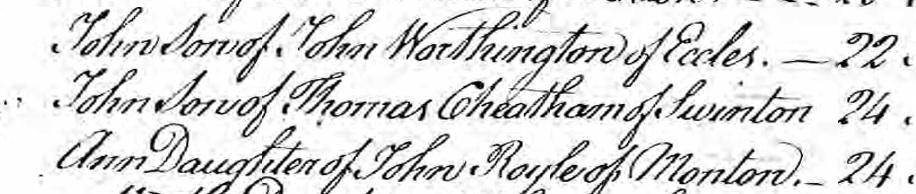 John Son of John Worthington of Eccles. — 22.
John Son of Thomas Cheatham of Swinton 24.
Ann Daughter of John Royle of Monton. — 24.